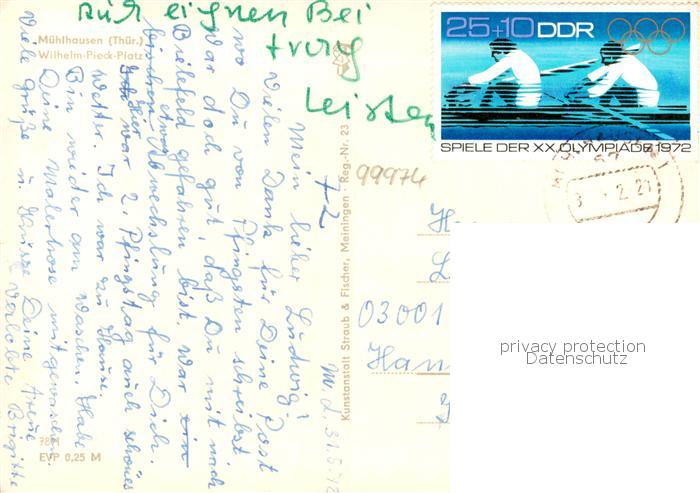 Auch eignen Bei
trag
Leisten
25+10 DDR
SPIELE DER XX. OLYMPIADE 1972
Mühlhausen (Thür.)
Wilhelm-Pieck-Platz
M. d. 31.5.72
72
Mein lieber Ludwig!
Vielen Dank für Deine Post
wo Du von Pfingsten schreibst
War doch gut, daß Du mit nach
Bielefeld gefahren bist. War ein
bischen Abwechslung für Dich.
etwas
Hier war 2. Pfingstag auch schönes
Wetter. Ich war zu Hause.
Bin wieder am Waschen. Habe
Deine Malerhose mitgewaschen.
Viele Grüße u. Küsse Deine
Verlobte Brigitte
7841
EVP 0,25 M
Kunstanstalt Straub & Fischer, Meiningen · Reg.-Nr. 23
99974
H
L
03001
Han
privacy protection
Datenschutz